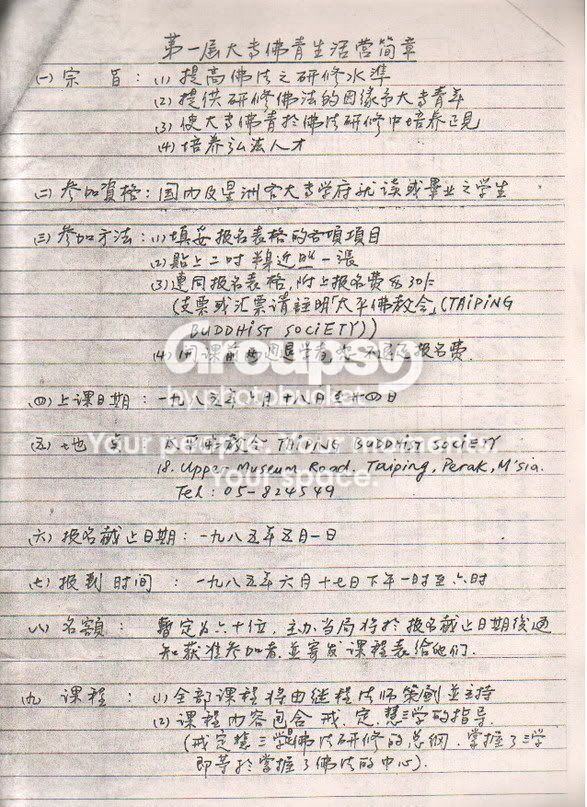 第一届大专佛青生活营简章
(一) 宗 旨: (1) 提高佛法之研修水準
(2) 提供研修佛法的因缘予大专青年
(3) 使大专佛青於佛法研修中培养正見
(4) 培养弘法人才
(二) 参加資格: 国内及星洲各大专学府就读或畢业之学生
(三) 参加方法: (1) 填妥报名表格的各項項目
(2) 貼上二吋半身近照一張
(3) 連同报名表格,附上报名費 30/-
(支票或汇票请註明「太平佛教会」(TAIPING
BUDDHIST SOCIETY))
(4) 開课前 週退学者,不退还报名费.
Groupsy
by photobucket
(四) 上课日期: 一九八五年 月十八日至 十四日
(五) 地 点: 太平佛教会 TAIPING BUDDHIST SOCIETY
Your people. Your moments.
18. Upper Museum Road. Taiping, Perak, M'sia.
Your space.
Tel: 05-824549
(六) 报名截止日期: 一九八五年五月一日
(七) 报到时间: 一九八五年六月十七日下午一时至六时
(八) 名額: 暫定为六十位,主办当局将於报名截止日期後通
知获准参加者並寄发课程表给他们.
(九) 课程: (1) 全部课程将由继程法师策劃並主持
(2) 课程内容包含戒.定.慧三学的指导.
(戒定慧三学是佛法研修的总纲.掌握了三学
即等於掌握了佛法的中心).